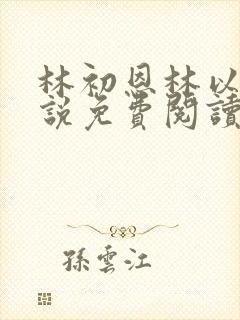 林初恩林以
說免費閱讀
孫雲江